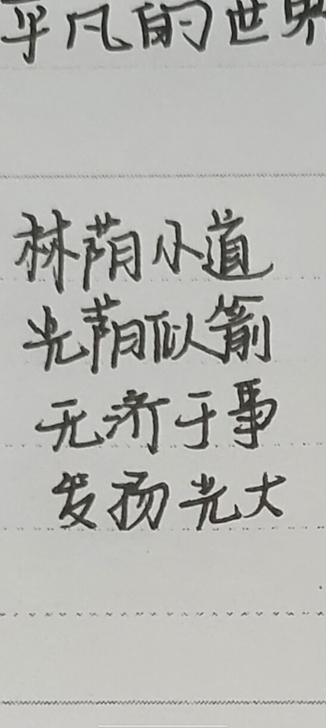 平凡的世界
林荫小道
光荫似箭
无济于事
发扬光大